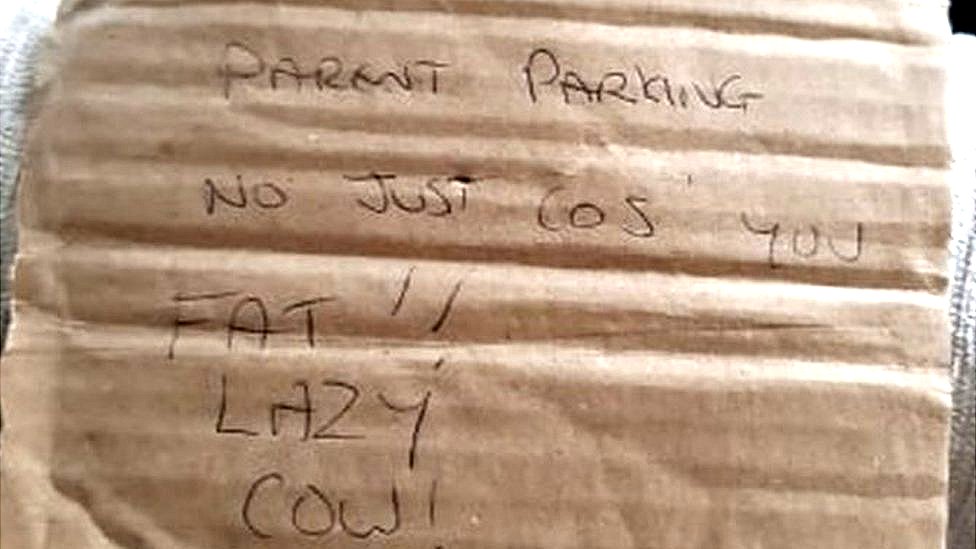 PARENT PARKING
NO JUST COS' YOU
FAT !!
LAZY
COW!